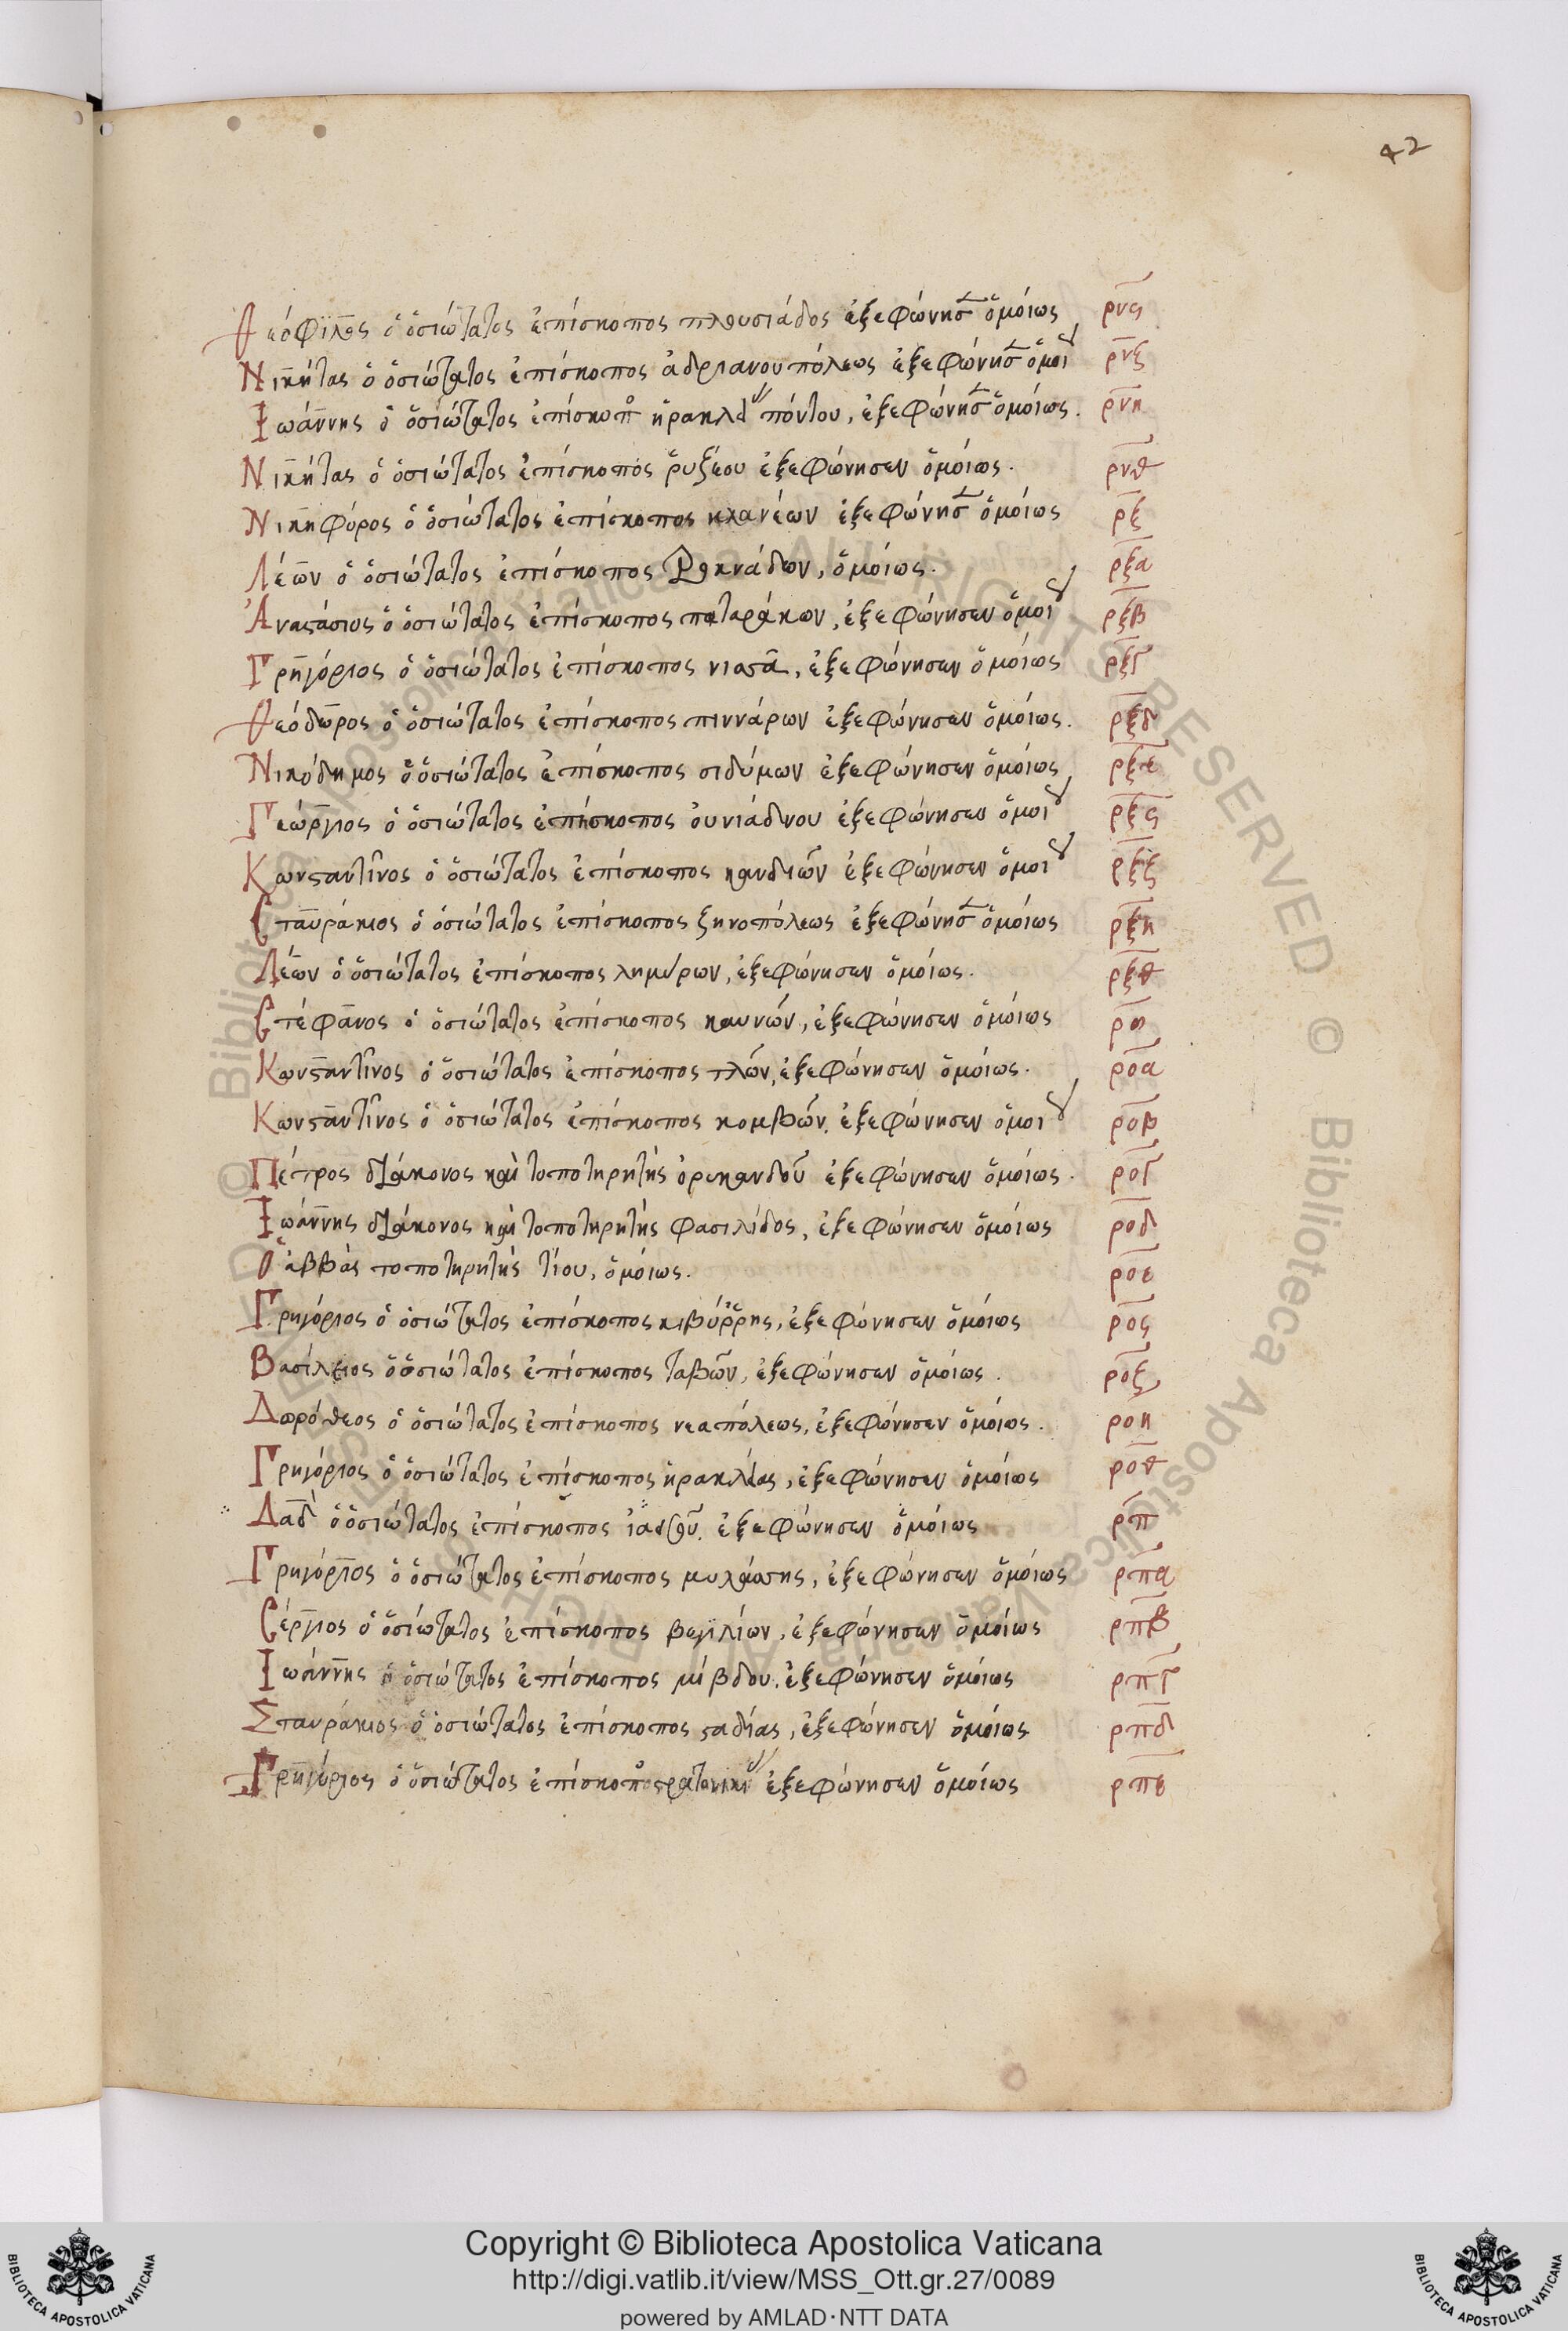 42
Θεόφιλος ὁ ὁσιώτατος ἐπίσκοπος πλουσιάδος ἐξεφώνησ ὁμοίως ρνς
Νικήτας ὁ ὁσιώτατος ἐπίσκοπος ἀδριανουπόλεως ἐξεφώνησ ὁμοι ρνζ
Ἰωάννης ὁ ὁσιώτατος ἐπίσκοπ ἡρακλ πόντου, ἐξεφώνησ ὁμοίως. ρνη
Νικήτας ὁ ὁσιώτατος ἐπίσκοπος ῥυξέου ἐξεφώνησεν ὁμοίως. ρνθ
Νικηφόρος ὁ ὁσιώτατος ἐπίσκοπος κλανέων ἐξεφώνησ ὁμοίως ρξ
Λέων ὁ ὁσιώτατος ἐπίσκοπος ὁμοίως. ρξα
Ἀναστάσιος ὁ ὁσιώτατος ἐπίσκοπος παταράκων, ἐξεφώνησεν ὁμοι ρξβ
Γρηγόριος ὁ ὁσιώτατος ἐπίσκοπος νισᾶ, ἐξεφώνησεν ὁμοίως ρξγ
Θεόδωρος ὁ ὁσιώτατος ἐπίσκοπος πιννάρων ἐξεφώνησεν ὁμοίως. ρξδ
Νικόδημος ὁ ὁσιώτατος ἐπίσκοπος σιδύμων ἐξεφώνησεν ὁμοίως ρξε
Γεώργιος ὁ ὁσιώτατος ἐπίσκοπος ὀυνιάδνου ἐξεφώνησεν ὁμοι ρξς
Κωνσταντῖνος ὁ ὁσιώτατος ἐπίσκοπος κανδιῶν ἐξεφώνησεν ὁμοι ρξζ
Σταυράκιος ὁ ὁσιώτατος ἐπίσκοπος ζηνοπόλεως ἐξεφώνησ ὁμοίως ρξη
Λέων ὁ ὁσιώτατος ἐπίσκοπος λημύρων, ἐξεφώνησεν ὁμοίως. ρξθ
Στέφανος ὁ ὁσιώτατος ἐπίσκοπος καυνῶν, ἐξεφώνησεν ὁμοίως ρο
Κωνσταντῖνος ὁ ὁσιώτατος ἐπίσκοπος τλῶν, ἐξεφώνησεν ὁμοίως. ροα
Κωνσταντῖνος ὁ ὁσιώτατος ἐπίσκοπος κομβῶν. ἐξεφώνησεν ὁμοι ροβ
Πέτρος διάκονος καὶ τοποτηρητὴς ὀρυκανδοῦ ἐξεφώνησεν ὁμοίως. ρογ
Ἰωάννης διάκονος καὶ τοποτηρητὴς φασιλίδος, ἐξεφώνησεν ὁμοίως ροδ
Ὁ ἀββὰς τοποτηρητὴς τίου, ὁμοίως. ροε
Γρηγόριος ὁ ὁσιώτατος ἐπίσκοπος κιβύῤῥης, ἐξεφώνησεν ὁμοίως ρος
Βασίλειος ὁ ὁσιώτατος ἐπίσκοπος ταβῶν, ἐξεφώνησεν ὁμοίως. ροζ
Δωρόθεος ὁ ὁσιώτατος ἐπίσκοπος νεαπόλεως, ἐξεφώνησεν ὁμοίως. ροη
Γρηγόριος ὁ ὁσιώτατος ἐπίσκοπος ἡρακλείας, ἐξεφώνησεν ὁμοίως ροθ
Δαδ ὁ ὁσιώτατος ἐπίσκοπος ἰασσοῦ. ἐξεφώνησεν ὁμοίως ρπ
Γρηγόριος ὁ ὁσιώτατος ἐπίσκοπος μυλάσης, ἐξεφώνησεν ὁμοίως ρπα
Σέργιος ὁ ὁσιώτατος ἐπίσκοπος βαγιλίων, ἐξεφώνησεν ὁμοίως ρπβ
Ἰωάννης ὁ ὁσιώτατος ἐπίσκοπος μίβδου. ἐξεφώνησεν ὁμοίως ρπγ
Σταυράκιος ὁ ὁσιώτατος ἐπίσκοπος σταδίας, ἐξεφώνησεν ὁμοίως ρπδ
Γρηγόριος ὁ ὁσιώτατος ἐπίσκοπ στρατονικ ἐξεφώνησεν ὁμοίως ρπε
Copyright © Biblioteca Apostolica Vaticana
http://digi.vatlib.it/view/MSS_Ott.gr.27/0089
powered by AMLAD·NTT DATA
BIBLIOTECA APOSTOLICA VATICANA
BIBLIOTECA APOSTOLICA VATICANA